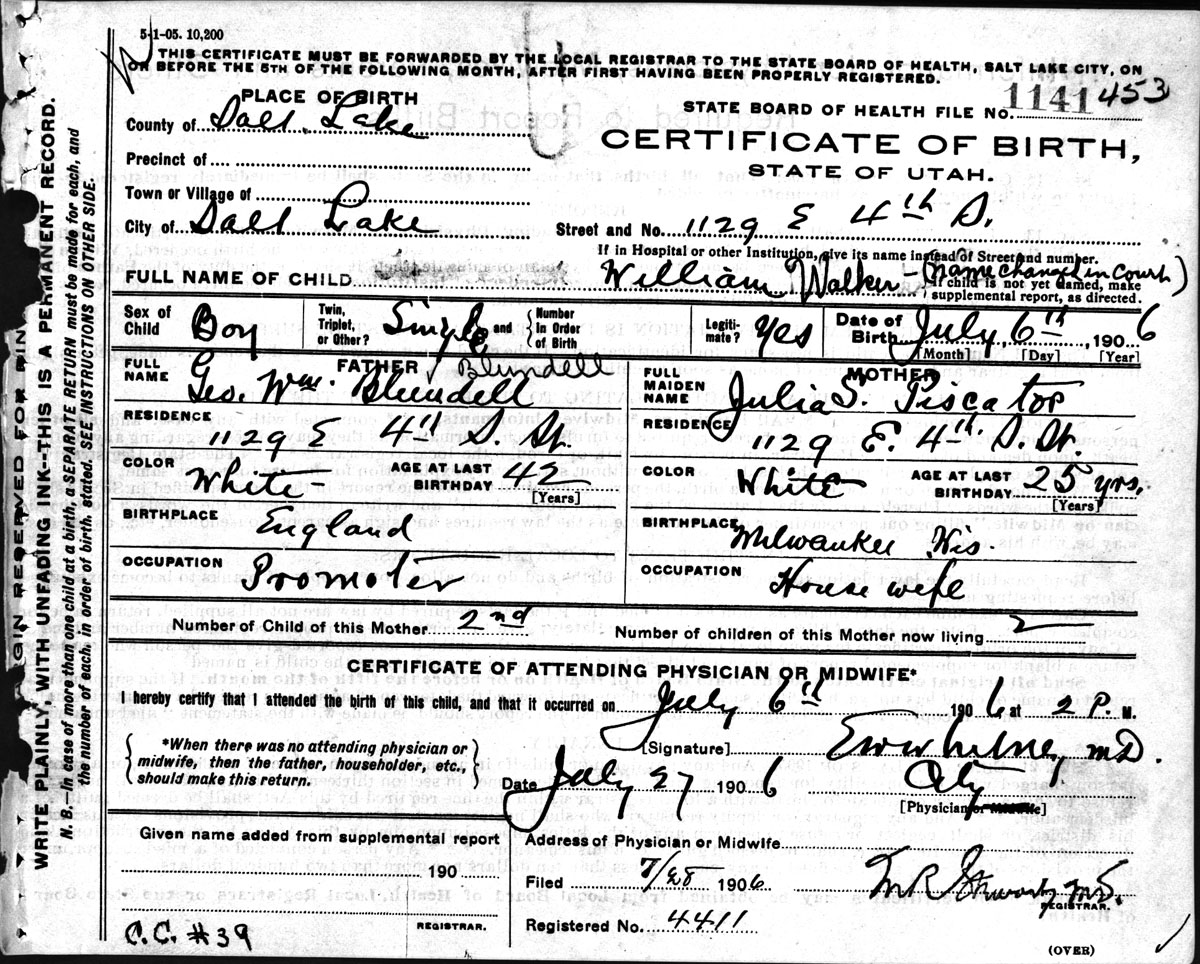 5-1-05. 10,200
THIS CERTIFICATE MUST BE FORWARDED BY THE LOCAL REGISTRAR TO THE STATE BOARD OF HEALTH, SALT LAKE CITY, ON
OR BEFORE THE 5TH OF THE FOLLOWING MONTH, AFTER FIRST HAVING BEEN PROPERLY REGISTERED.
PLACE OF BIRTH
County of Salt Lake
Precinct of
Town or Village of
City of Salt Lake
STATE BOARD OF HEALTH FILE NO. 1141 453
CERTIFICATE OF BIRTH,
STATE OF UTAH.
Street and No. 1129 E 4th S.
If in Hospital or other Institution, give its name instead of Street and number.
FULL NAME OF CHILD William Walker - (Name changed in Court)
If child is not yet named, make
supplemental report, as directed.
Sex of Child Boy
Twin, Triplet, or Other? Single and { Number in Order of Birth
Legitimate? Yes
Date of Birth July 6th, 1906
[Month] [Day] [Year]
FATHER
Blundell
FULL NAME Geo. Wm. Blundell
RESIDENCE 1129 E 4th S St.
COLOR White
AGE AT LAST BIRTHDAY 42
[Years]
BIRTHPLACE England
OCCUPATION Promoter
MOTHER
FULL MAIDEN NAME Julia S. Piscator
RESIDENCE 1129 E. 4th. S. St.
COLOR White
AGE AT LAST BIRTHDAY 25 yrs.
[Years]
BIRTHPLACE Milwaukee Wis.
OCCUPATION House wife
Number of Child of this Mother 2nd
Number of children of this Mother now living 2
CERTIFICATE OF ATTENDING PHYSICIAN OR MIDWIFE*
I hereby certify that I attended the birth of this child, and that it occurred on July 6th 1906 at 2 P. M.
{ *When there was no attending physician or
midwife, then the father, householder, etc.,
should make this return. }
[Signature] M.D.
Date July 27 1906 City
[Physician or Midwife]
Given name added from supplemental report
190
REGISTRAR.
C.C. #39
Address of Physician or Midwife
Filed 7/28 1906
M.D.
REGISTRAR.
Registered No. 4411
(OVER)
WRITE PLAINLY, WITH UNFADING INK-THIS IS A PERMANENT RECORD.
N.B.—In case of more than one child at a birth, a SEPARATE RETURN must be made for each, and
the number of each, in order of birth, stated. (SEE INSTRUCTIONS ON OTHER SIDE.